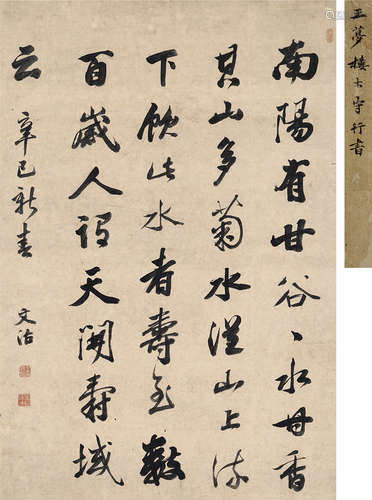 王夢樓大字行書
南陽有甘谷、水香
其山多菊水從山上流
下飲此水者壽至數
百歲人謂天開壽域
云 辛巳新春 文治